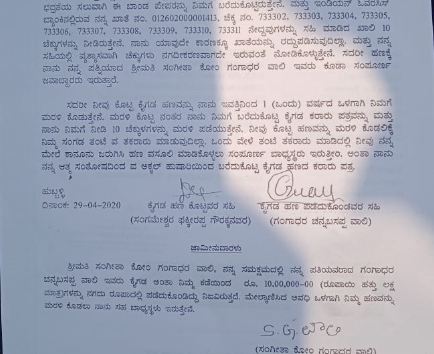 ಭದ್ರತೆಯ ಸಲುವಾಗಿ ಈ ಬಾಂಡ ಪೇಪರನ್ನು ನಿಮಗೆ ಬರೆದುಕೊಟ್ಟಿರುತ್ತೇನೆ. ಮತ್ತು ಇಂಡಿಯನ್ ಓವರಸಿಸ್
ಬ್ಯಾಂಕಿನಲ್ಲಿರುವ ನನ್ನ ಖಾತೆ ನಂ. 012602000001413, ಚೆಕ್ಕ ನಂ. 733302, 733303, 733304, 733305,
733306, 733307, 733308, 733309, 733310, 733311 ನೇದ್ದವುಗಳನ್ನು ಸಹಿ ಮಾಡಿದ ಖಾಲಿ 10
ಚೆಕ್ಕುಗಳನ್ನು ನೀಡಿರುತ್ತೇನೆ. ನಾನು ಯಾವುದೇ ಕಾರಣಕ್ಕೂ ಖಾತೆಯನ್ನು ರದ್ದುಪಡಿಸುವುದಿಲ್ಲಾ. ಮತ್ತು ನನ್ನ
ಸಹಿಯಲ್ಲಿ ವ್ಯತ್ಯಾಸವಾಗಿ ಚೆಕ್ಕುಗಳು ನಗದೀಕರಣವಾಗದೇ ಇರುವಂತೆ ನೋಡಿಕೊಳ್ಳುತ್ತೇನೆ. ಸದರೀ ಹಣಕ್ಕೆ
ನಾನು ನನ್ನ ಪತ್ನಿಯಾದ ಶ್ರೀಮತಿ ಸಂಗೀತಾ ಕೋಂ ಗಂಗಾಧರ ವಾಲಿ ಇವರು ಕೂಡಾ ಸಂಪೂರ್ಣ
ಜವಾಬ್ದಾರರು ಇರುತ್ತಾರೆ.
ಸದರೀ ನೀವು ಕೊಟ್ಟ ಕೈಗಡ ಹಣವನ್ನು ನಾನು ಇವತ್ತಿನಿಂದ 1 (ಒಂದು) ವರ್ಷದ ಒಳಗಾಗಿ ನಿಮಗೆ
ಮರಳಿ ಕೊಡುತ್ತೇನೆ. ಮರಳಿ ಕೊಟ್ಟ ನಂತರ ನಾನು ನಿಮಗೆ ಬರೆದುಕೊಟ್ಟ ಕೈಗಡ ಕರಾರು ಪತ್ರವನ್ನು ಮತ್ತು
ನಾನು ನಿಮಗೆ ನೀಡಿ 10 ಚೆಕ್ಕುಳಗಳನ್ನು ಮರಳಿ ಪಡೆಯುತ್ತೇನೆ. ನೀವು ಕೊಟ್ಟ ಹಣವನ್ನು ಮರಳಿ ಕೊಡಲಿಕ್ಕೆ
ನಿಮ್ಮ ಸಂಗಡ ತಂಟೆ ವ ತಕರಾರು ಮಾಡುವುದಿಲ್ಲಾ. ಒಂದು ವೇಳೆ ತಂಟೆ ತಕರಾರು ಮಾಡಿದಲ್ಲಿ ನೀವು ನನ್ನ
ಮೇಲೆ ಕಾನೂನು ಜರುಗಿಸಿ ಹಣ ವಸೂಲಿ ಮಾಡಕೊಳ್ಳಲು ಸಂಪೂರ್ಣ ಬಾಧ್ಯಸ್ಥರು ಇರುತ್ತೀರಿ. ಅಂತಾ ನಾನು
ನನ್ನ ಆತ್ಮ ಸಂತೋಷದಿಂದ ವ ಅಕ್ಕಲ್ ಹುಷಾರಿಯಿಂದ ಬರೆದುಕೊಟ್ಟ ಕೈಗಡ ಹಣದ ಕರಾರು ಪತ್ರ.
ಹುಬ್ಬಳ್ಳಿ
ದಿನಾಂಕ: 29-04-2020 ಕೈಗಡ ಹಣ ಕೊಟ್ಟವರ ಸಹಿ ಕೈಗಡ ಹಣ ಪಡೆದುಕೊಂಡವರ ಸಹಿ
(ಸಂಗಮೇಶ್ವರ ಫಕ್ಕೀರಪ್ಪ ಗೌರಕ್ಕನವರ) (ಗಂಗಾಧರ ಚನ್ನಬಸಪ್ಪ ವಾಲಿ)
ಜಾಮೀನುದಾರಳು
ಶ್ರೀಮತಿ ಸಂಗೀತಾ ಕೋಂ ಗಂಗಾಧರ ವಾಲಿ, ನನ್ನ ಸಮಕ್ಷಮದಲ್ಲಿ ನನ್ನ ಪತಿಯವರಾದ ಗಂಗಾಧರ
ಚನ್ನಬಸಪ್ಪ ವಾಲಿ ಇವರು ಕೈಗಡ ಅಂತಾ ನಿಮ್ಮ ಕಡೆಯಿಂದ ರೂ. 10,00,000-00 (ರೂಪಾಯಿ ಹತ್ತು ಲಕ್ಷ
ಮಾತ್ರ)ಗಳನ್ನು ನಗದು ರೂಪಾದಲ್ಲಿ ಪಡೆದುಕೊಂಡಿದ್ದು ನಿಜವಿರುತ್ತದೆ. ಮೇಲ್ಕಾಣಿಸಿದ ಅವಧಿ ಒಳಗಾಗಿ ನಿಮ್ಮ ಹಣವನ್ನು
ಮರಳಿ ಕೊಡಲು ನಾನು ಸಹ ಬಾಧ್ಯಸ್ಥಳು ಇರುತ್ತೇನೆ.
S. G. ವಾಲಿ
(ಸಂಗೀತಾ ಕೋಂ ಗಂಗಾಧರ ವಾಲಿ)